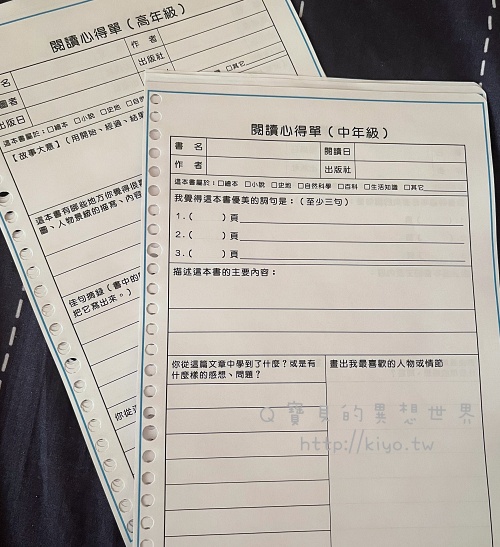 閱讀心得單（高年級）
名
作 者
出版社
出版日
這本書屬於：□繪本 □小說 □史地 □自然
□其它
【故事大意】（用開始、經過、結果
這本書有哪些地方你覺得很
畫、人物景緻的描寫、內容
佳句摘錄（書中的
把它寫出來。）
你從這
閱讀心得單（中年級）
書 名
閱讀日
作 者
出版社
這本書屬於：□繪本 □小說 □史地 □自然科學 □百科 □生活知識 □其它
我覺得這本書優美的詞句是：（至少三句）
1.（ ）頁
2.（ ）頁
3.（ ）頁
描述這本書的主要內容：
你從這篇文章中學到了什麼？或是有
什麼樣的感想、問題？
畫出我最喜歡的人物或情節
Q寶貝的異想世界
http://kiyo.tw